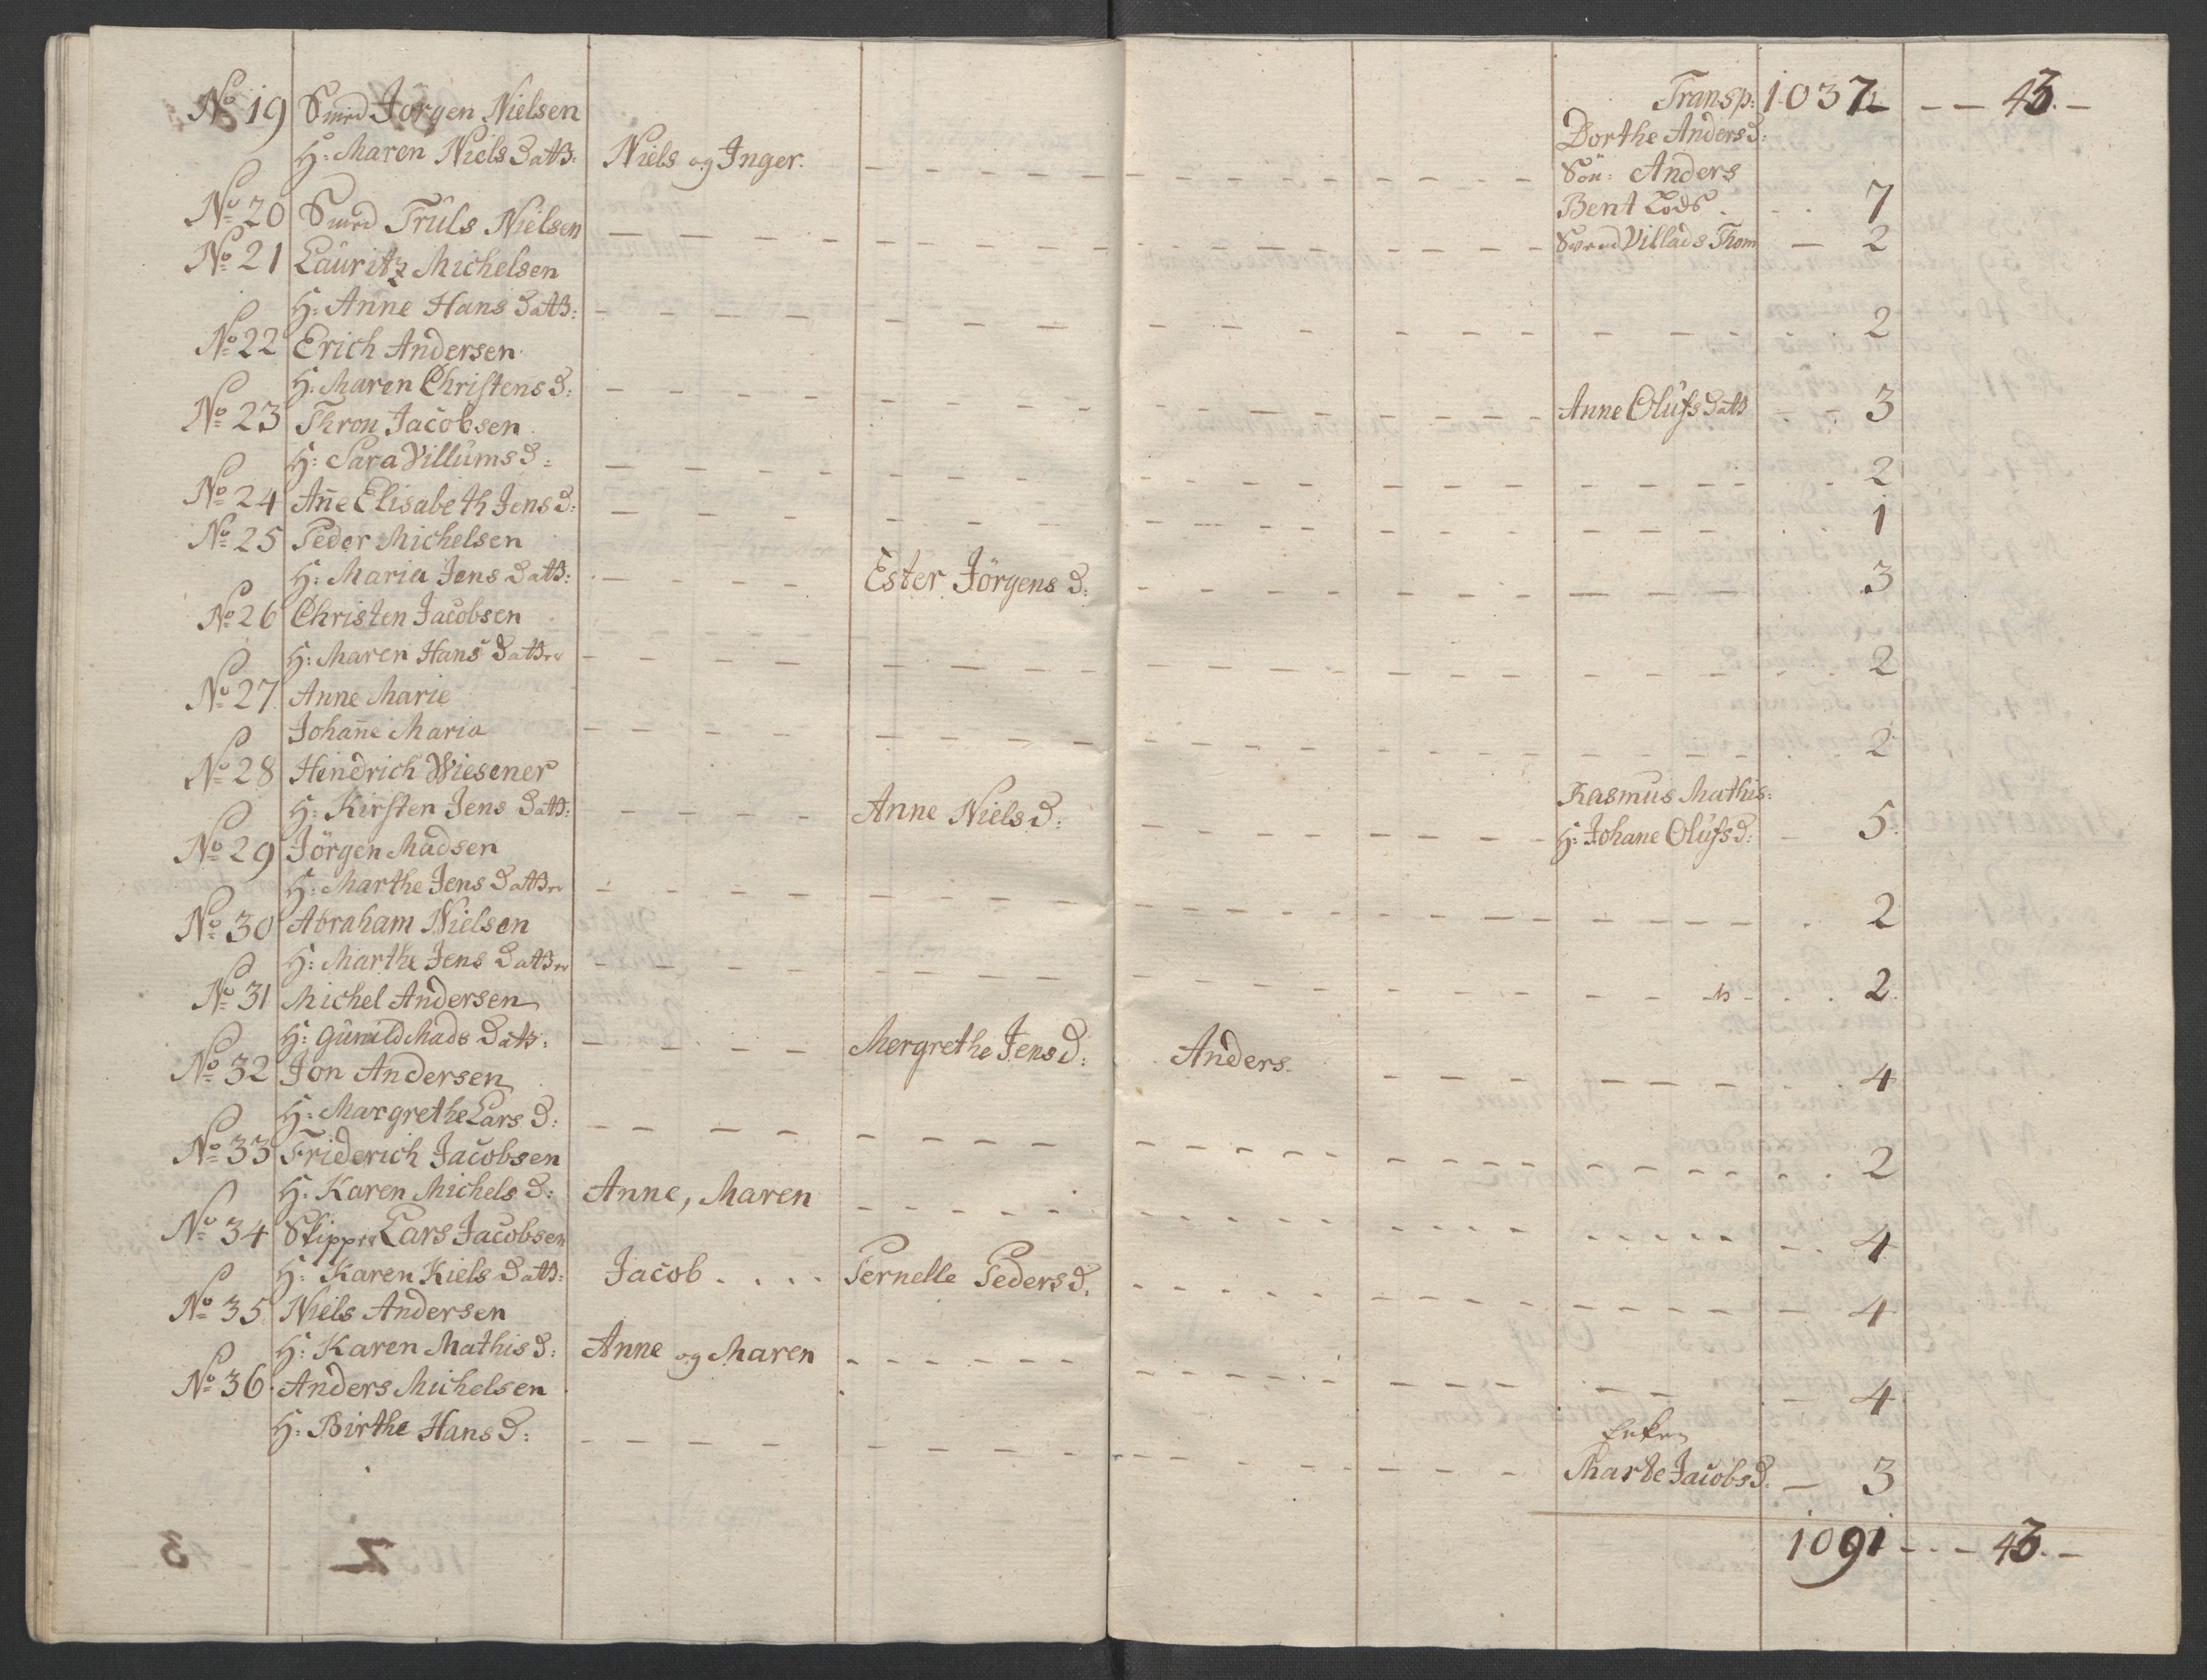 Transp: 1037 - - 43. -
No 19 Smed Jörgen Nielsen Dorthe Anders D:
H: Maren Niels Dattr: Niels og Inger. - - - Sön: Anders
Bent Lods . . . 7
No 20 Smed Truls Nielsen - - - Svend Villads Thom - 2
No 21 Lauritz Michelsen
H: Anne Hans Dattr: - - - 2
No 22 Erich Andersen
H: Maren Christens D: - - - Anne Olufs Dattr - - 3
No 23 Thron Jacobsen
H: Sara Villums D: - - - 2
No 24 Añe Elisabeth Jens D: - - - 1
No 25 Peder Michelsen
H: Maria Jens Dattr: - - - Ester Jörgens D: - - - 3
No 26 Christen Jacobsen
H: Maren Hans Datter - - - 2
No 27 Anne Marie
Johañe Maria - - - 2
No 28 Hendrich Wiesener Rasmus Mathis:
H: Kirsten Jens Dattr: - - - Anne Niels D: - - - H: Johane Olufs D: - 5
No 29 Jörgen Madsen
H: Marthe Jens Datter - - - 2
No 30 Abraham Nielsen
H: Marthe Jens Datter - - - 2
No 31 Michel Andersen
H: Gunild Mads Dattr: - - - Mergrethe Jens D: Anders - - - 4
No 32 Jon Andersen
H: Margrethe Lars D: - - - 2
No 33 Friderich Jacobsen
H: Karen Michels D: Anne, Maren - - - 4
No 34 Skipper Lars Jacobsen
H: Karen Kiels Dattr: Jacob . . . . Pernelle Peders D. - - - 4
No 35 Niels Andersen
H: Karen Mathis D: Anne og Maren - - - 4
No 36 Anders Michelsen Enken
H: Birthe Hans D: - - - Marte Jacobs D: - 3
1091 - - - 43. -